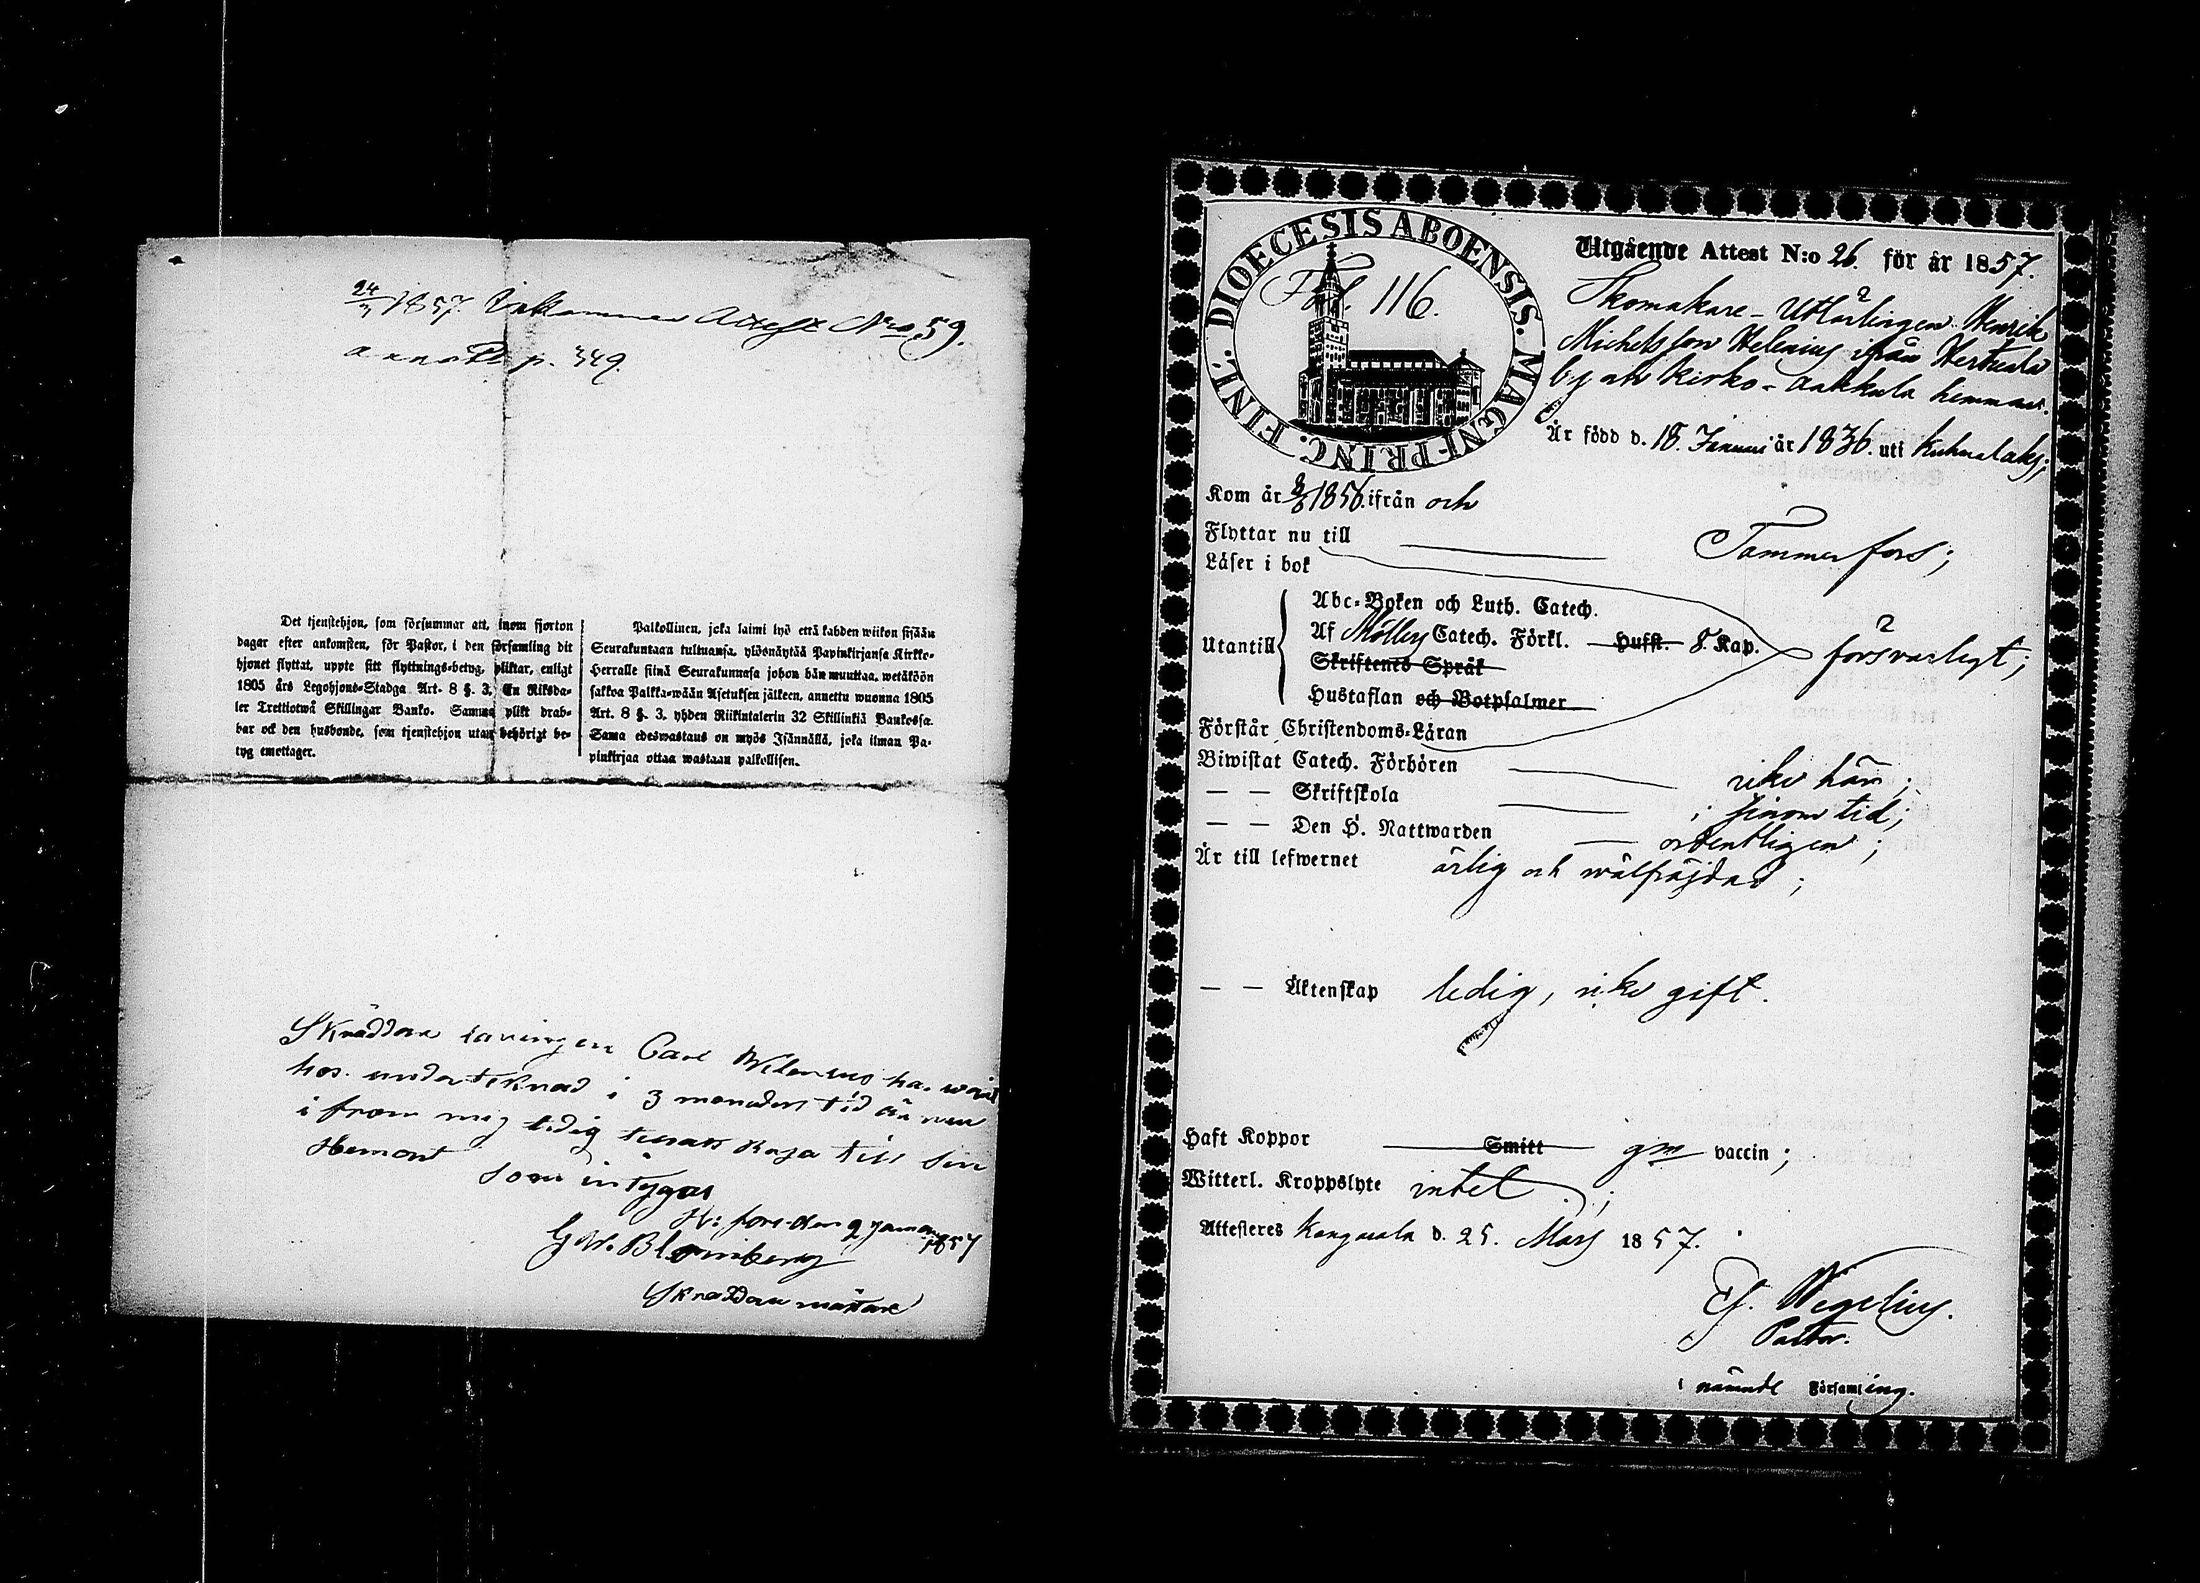 24/3 1857. Inkommen Attest Nro 59.
annoté p. 349.
Det tjenstehjon, som försummar att, inom fjorton
dagar efter ankomsten, för Pastor, i den församling dit
hjonet flyttat, uppte sitt flyttnings-betyg, pliktar, enligt
1805 års Legohjons-Stadga Art. 8 §. 3, En Riksda-
ler Trettiotwå Skillingar Banko. Samma plikt drab-
bar ock den husbonde, som tjenstehjon utan behörigt be-
tyg emottager.
Palkollinen, joka laimi lyö että kahden wiikon sisään
Seurakuntaan tultuansa, ylösnäytää Papinkirjansa Kirkko-
Herralle siinä Seurakunnasa johon hän muuttaa, wetäköön
sakkoa Palkka-wään Asetuksen jälkeen, annettu wuonna 1805
Art. 8 §. 3, yhden Riikintalerin 32 Skillinkiä Bankossa.
Sama edeswastaus on myös Isännällä, joka ilman Pa-
pinkirjaa ottaa wastaan palkollisen.
Skräddare lärningen Carl Welenius har warit
hos underteknad i 3 monaders tid än nu
i from mig ledig till sin
Hemort
som intygar
H:fors den 9 Januari 1857
G. W. Blomberg
Skräddare mästare
DIOECESIS ABOENSIS. MAGNI PRINC. FINL.
Fol. 116.
Utgående Attest N:o 26. för år 1857.
Skomakare-Utlärlingen Henrik
Michelsson Helenius ifrån Herttuala
by och Kirko-Aakkula hemman.
Är född d. 18. Januari år 1836. uti Kuhmalaks;
Kom år 1856. ifrån och
Flyttar nu till Tammerfors;
Läser i bok
Abc-Boken och Luth. Catech.
Utantill Af Möllers Catech. Förkl. Hufst. 8. Kap. försvarligt;
Skriftenes Språk
Hustaflan och Botpsalmer
Förstår Christendoms-Läran
Biwistat Catech. Förhören icke här;
— — Skriftskola i sinom tid;
— — Den H. Nattwarden ordentligen;
Är till lefwernet ärlig och wälfräjdad;
— — Äktenskap ledig, icke gift.
Haft Koppor Smitt gm vaccin;
Witterl. Kroppslyte intet;
Attesteres Kangasala d. 25. Mars 1857.
Ef. Wegelius.
Pastor.
i nämnde Församling.